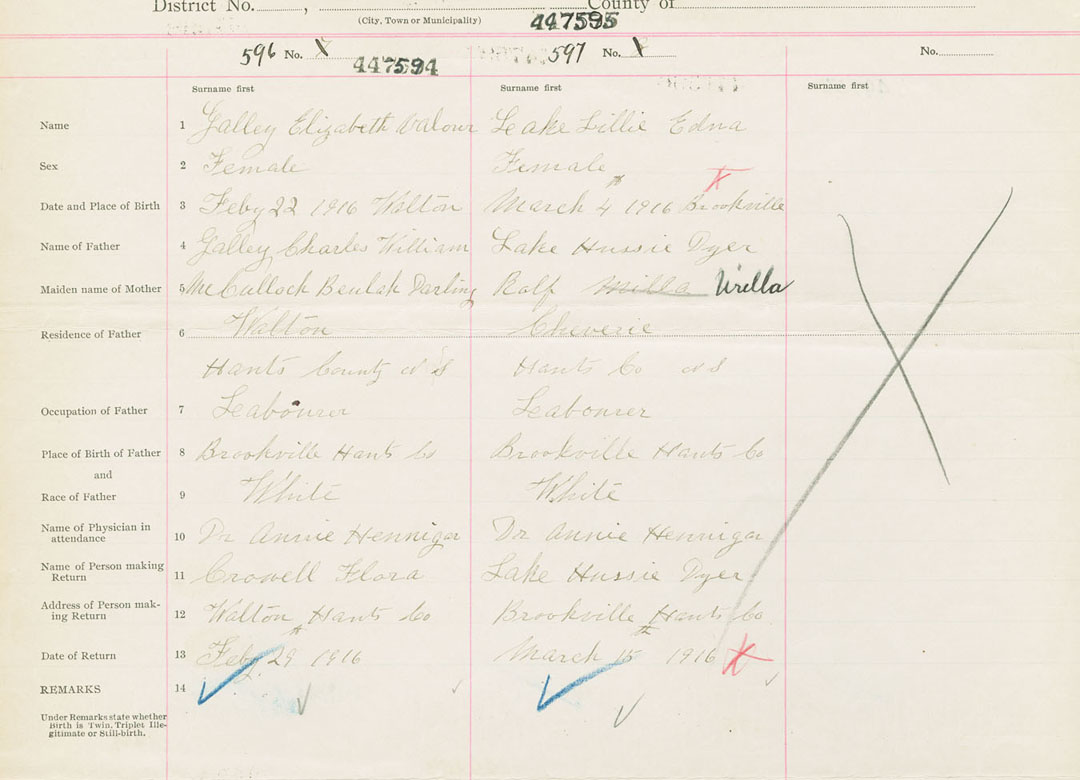 District No. , County of
(City, Town or Municipality) 447595
596 No. 447594 597 No. No.
Surname first Surname first Surname first
Name 1 Galley Elizabeth Valour Leake Lillie Edna
Sex 2 Female Female
Date and Place of Birth 3 Feby 22 1916 Walton March 4th 1916 Brookville
Name of Father 4 Galley Charles William Lake Hussie Dyer
Maiden name of Mother 5 McCullock Beulah Darling Rolf Milla Urella
Residence of Father 6 Walton Cheverie
Hants County N S Hants Co N S
Occupation of Father 7 Leabourer Leabourer
Place of Birth of Father 8 Brookville Hants Co Brookville Hants Co
and
Race of Father 9 White White
Name of Physician in
attendance 10 Dr Annie Hennigar Dr Annie Hennigar
Name of Person making
Return 11 Crowell Flora Lake Hussie Dyer
Address of Person mak-
ing Return 12 Walton Hants Co Brookville Hants Co
Date of Return 13 Feby 29th 1916 March 15th 1916
REMARKS 14
Under Remarks state whether
Birth is Twin, Triplet Ille-
gitimate or Still-birth.